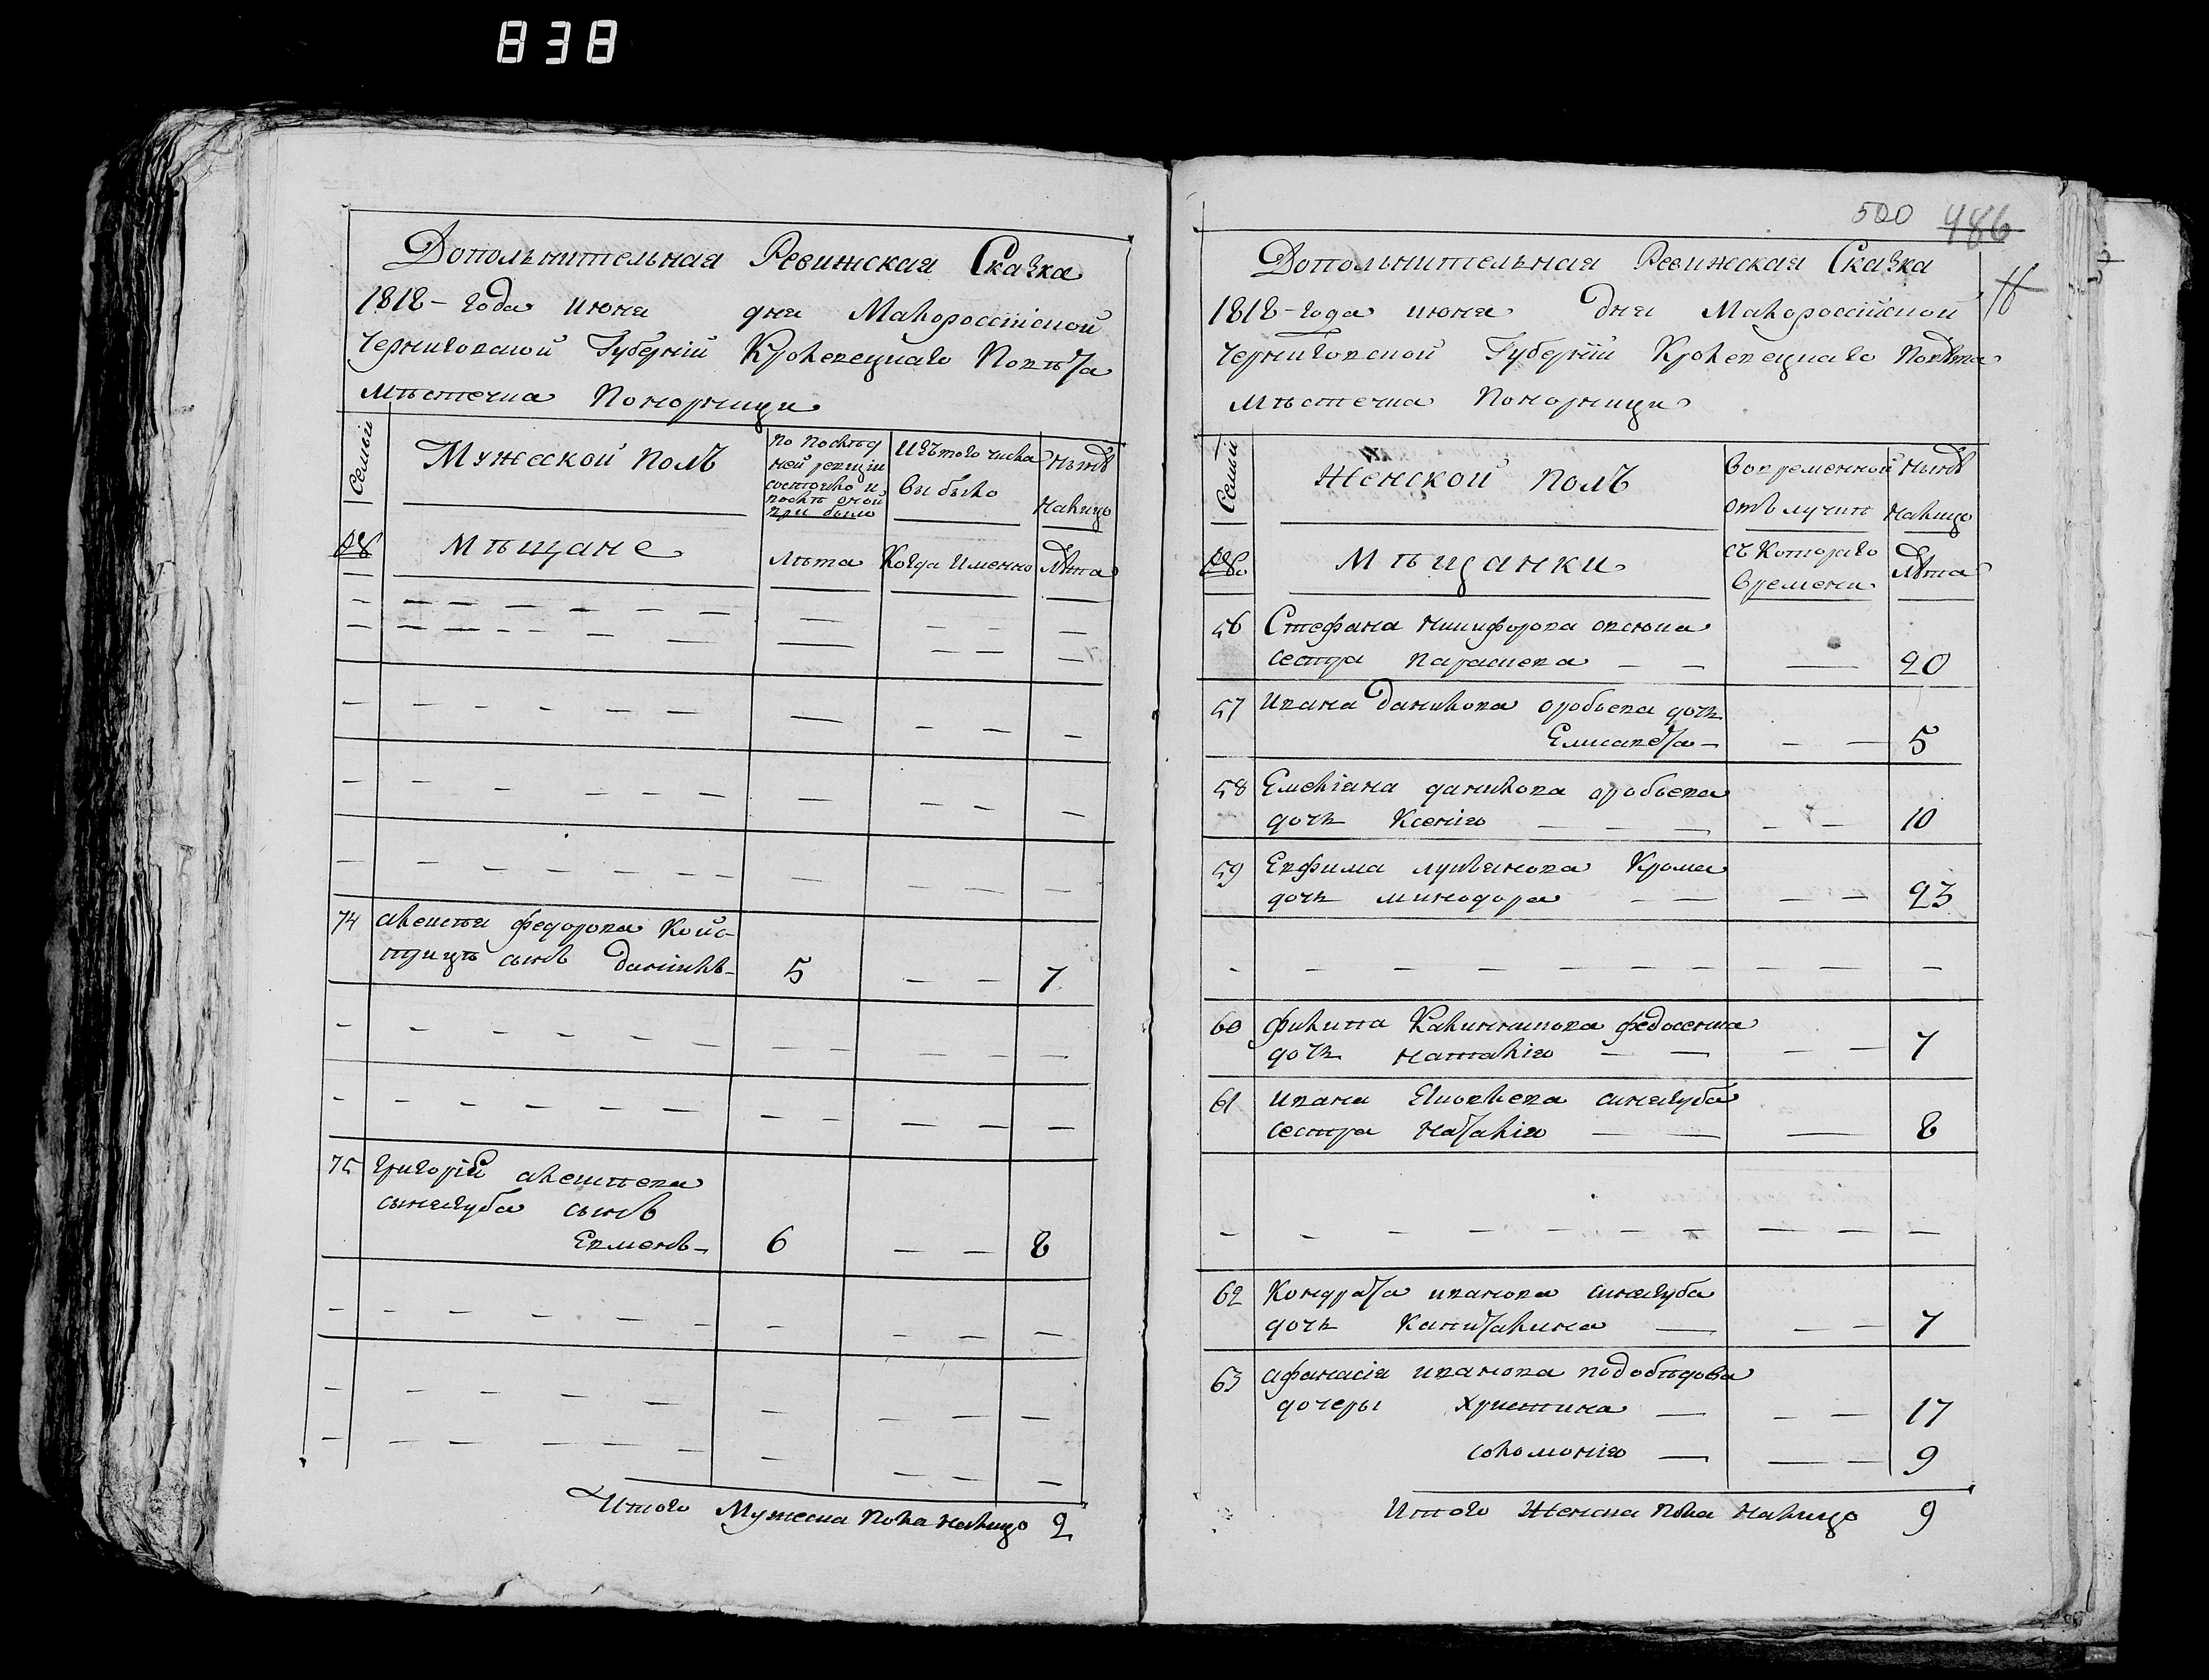 838
Дополънителъная Ревижская Сказка
1818– года июня дня Малороссійской
Черниговской Губерніи Кролевецкаго Повѣта
Мѣстечка Понорници
Семьи
Мужеской полъ
по послѣд
ней ревизіи
состояло и
послѣ оной
при было
Изъ того числа
вы было
Нынѣ
налицо
№
Мѣщане
лѣта
Когда Именно
Лѣта
74 алексѣя федорова
сынъ данилъ– 5 — — 7
75 григорій алексѣева
синегуба сынъ
Евменъ– 6 — — 8
Итого Мужеска пола налицо 2
500 486
Дополънителъная Ревижская Сказка
1818–года июня дня Малороссійской
Черниговской Губерніи Кролевецкаго Повѣта
Мѣстечка Понорници
Семьи
Женской полъ
Вовременной
отълучкѣ
Нынѣ
налицо
№
Мѣщанки
съ Котораго
времени
Лѣта
56 Стефана никифорова
сестра параскева — — — 20
57 ивана данилова оробьева дочь
Елисавета– — — 5
58 Емелiана данилова оробьева
дочь Ксенiя — — — — — 10
59 Евфима лукьянова Крома
дочь минодора — — — — 23
60 филипа Калинникова федосенка
дочь наталiя — — — — 7
61 ивана синегуба
сестра наталiя — — — 8
62 Кондрата иванова синегуба
дочь Капиталина — — — 7
63 афанасiя иванова подобѣдова
дочеры христина — — — 17
соломонiя — — — 9
Итого Женска пола налицо 9